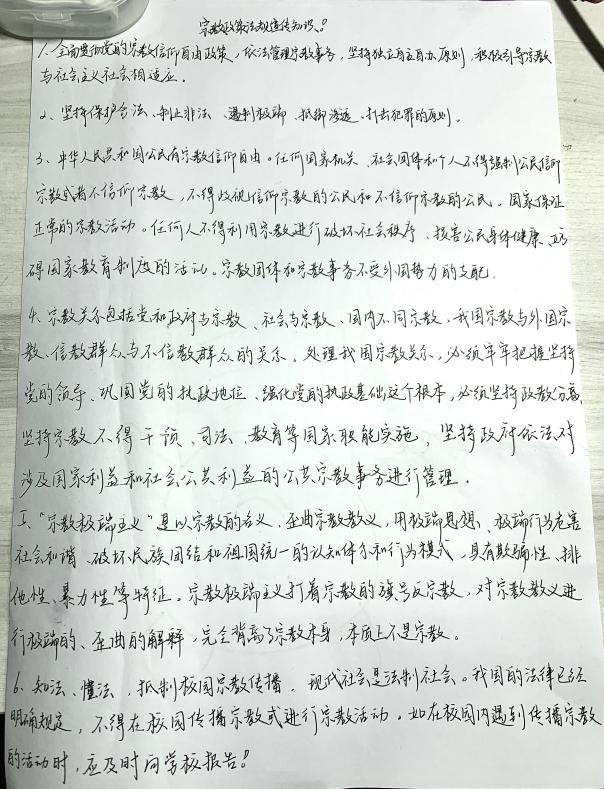 宗教政策法规宣传知识。!
1、全面贯彻党的宗教信仰自由政策，依法管理宗教事务，坚持独立自主自办原则，积极引导宗教
与社会主义社会相适应。
2、坚持保护合法、制止非法、遏制极端、抵御渗透、打击犯罪的原则。
3、中华人民共和国公民有宗教信仰自由。任何国家机关、社会团体和个人不得强制公民信仰
宗教或者不信仰宗教，不得歧视信仰宗教的公民和不信仰宗教的公民。国家保证
正常的宗教活动。任何人不得利用宗教进行破坏社会秩序、损害公民身体健康、妨
碍国家教育制度的活动。宗教团体和宗教事务不受外国势力的支配.
4、宗教关系包括党和政府与宗教、社会与宗教、国内不同宗教，我国宗教与外国宗
教、信教群众与不信教群众的关系，处理我国宗教关系，必须牢牢把握坚持
党的领导、巩固党的执政地位、强化党的执政基础这个根本，必须坚持政教分离,
坚持宗教不得干预、司法、教育等国家职能实施，坚持政府依法对
涉及国家利益和社会公共利益的公共宗教事务进行管理.
五、"宗教极端主义"是以宗教的名义、歪曲宗教教义，用极端思想、极端行为危害
社会和谐、破坏民族团结和祖国统一的认知体系和行为模式，具有欺骗性、排
他性、暴力性等特征。宗教极端主义打着宗教的旗号反宗教，对宗教教义进
行极端的、歪曲的解释，完全背离了宗教本身，本质上不是宗教。
6、知法、懂法，抵制校园宗教传播．现代社会是法制社会。我国的法律已经
明确规定，不得在校园传播宗教或进行宗教活动。如在校园内遇到传播宗教
的活动时，应及时向学校报告!